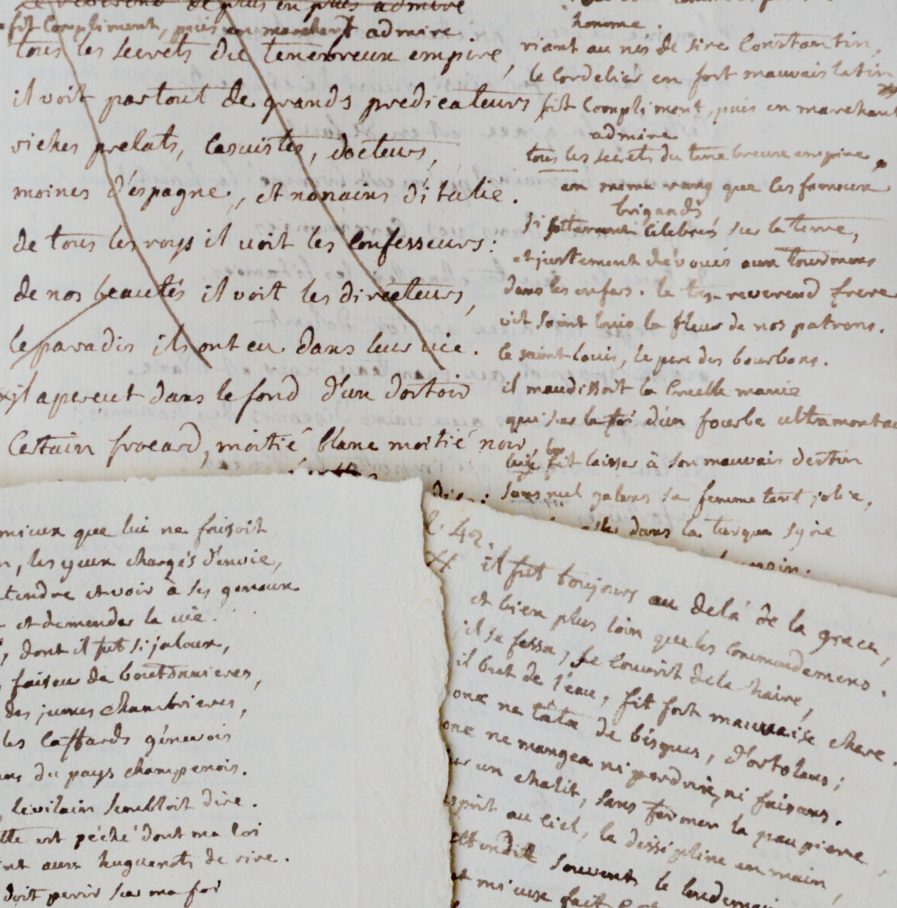 le reverend de plus en plus admire
fit compliment, puis en marchant admire.
tous les secrets du tenebreux empire,
il voit partout de grands predicateurs
riches prelats, casuistes, docteurs,
moines d'espagne, et nonains d'italie.
de tous les roys il voit les confesseurs:
de nos beautés il voit les directeurs,
le paradis ils ont eu dans leur vie.
il apercut dans le fond d'un dortoir
Certain frocard, moitié blanc moitié noir,
homme.
riant au nés de sire Constantin,
le Cordelier en fort mauvais latin
fit Compliment, puis en marchant
admire
tous les secrets du tenebreux empire
en meme rang que les fameux
brigands
si celebrés sur la terre,
et justement dévoués aux tourmens
dans les enfers. le tres-reverend frere
vit saint louis la fleur de nos patrons.
le saint louis, le pere des bourbons.
il maudissoit la cruelle manie
qui sur la foi d'un fourbe ultramontai
fit laisser à son mauvais destin
sa femme tant jolie,
dans la turque syrie
mieux que lui ne faisoit
n, les yeux chargés d'envie,
tendre et voir à ses genoux
et demander la vie.
, dont il fut si jaloux,
faiseur de boutonnieres,
des jeunes chambrieres,
les caffards génevois
du pays champenois.
, le vilain sembloit dire.
est péché dont ma loi
aux huguenots de rire.
doit perir sur ma foi
42.
il fut toujours au dela de la grace,
et bien plus loin que les commandemens.
il se fessa; se couvrit de la haire,
il but de l'eau, fit fort mauvaise chere.
onc ne tâta de bisques, d'ortolans;
onc ne mangea ni perdrix, ni faisans.
sur un chalit, sans fermer la paupiere,
esprit au ciel, la discipline en main,
attendit souvent le lendemain
mieux fait